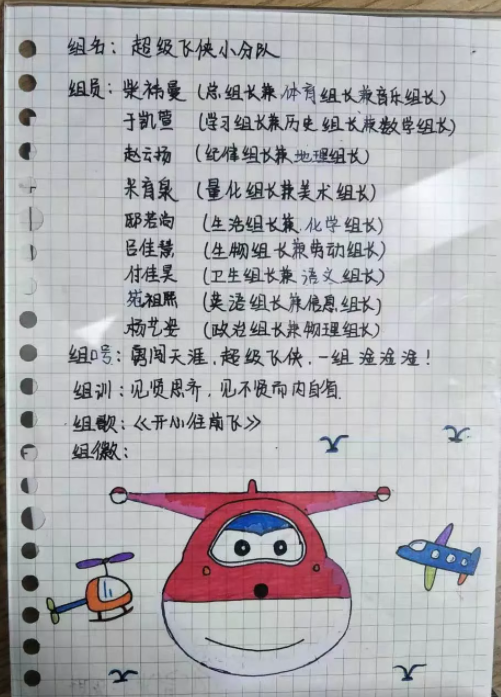 组名：超级飞侠小分队
组员：柴祎曼（总组长兼体育组长兼音乐组长）
于凯萱（学习组长兼历史组长兼数学组长）
赵云扬（纪律组长兼地理组长）
米育泉（量化组长兼美术组长）
邸若尚（生活组长兼化学组长）
吕佳慧（生物组长兼劳动组长）
付佳昊（卫生组长兼语文组长）
范祖熙（英语组长兼信息组长）
杨艺姿（政治组长兼物理组长）
组口号：勇闯天涯，超级飞侠，一组 淦淦淦！
组训：见贤思齐，见不贤而内自省.
组歌：《开心往前飞》
组徽：